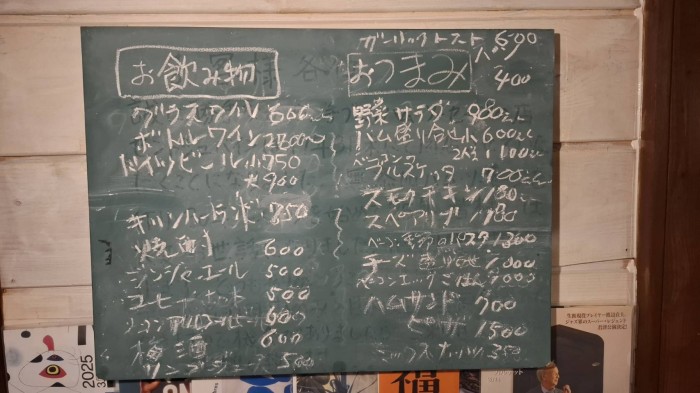 お飲み物
グラスワイン 600円〜
ボトルワイン 2800〜
ドイツビール 小750
大900
キリンハートランド 750
焼酎 600
ジンジャエール 500
コーヒーホット 500
ノンアルコールビール 600
梅酒 600
オレンジジュース 500
ガーリックトースト 600
パン 400
おつまみ
野菜サラダ 980
ハム盛り合せ 小600
2人 1100
ブルスケッタ 700
スモークチキン
スペアリブ 1180
パスタ 1300
チーズ盛り合せ
ベーコンエッグごはん
ハムサンド 700
ピザ 1500
ミックスナッツ 350
2025
福